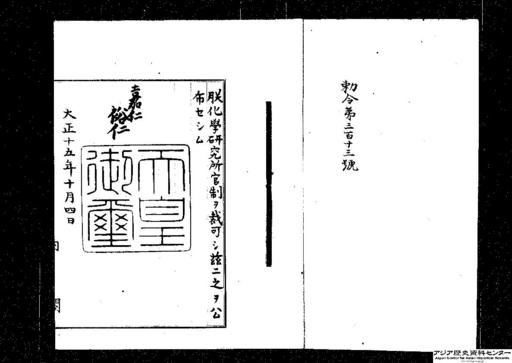 勅令第三百十三號
朕化學研究所官制ヲ裁可シ玆ニ之ヲ公
布セシム
嘉仁
裕仁
天皇
御璽
大正十五年十月四日
内閣
アジア歴史資料センター
Japan Center for Asian Historical Records